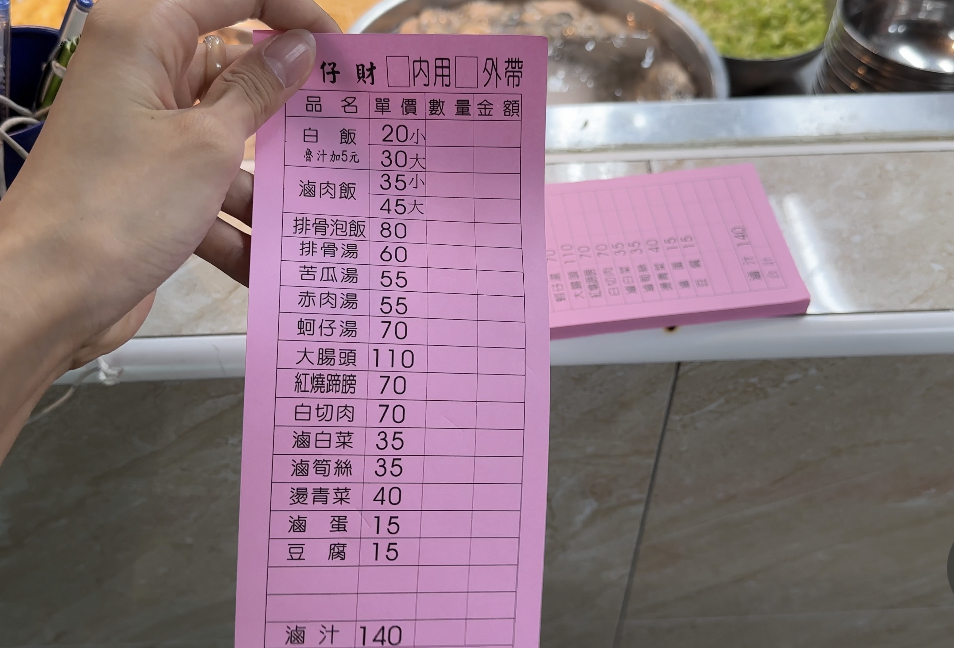 仔財 □內用□外帶
品名 單價 數量 金額
白飯 20小
魯汁加5元 30大
滷肉飯 35小
45大
排骨泡飯 80
排骨湯 60
苦瓜湯 55
赤肉湯 55
蚵仔湯 70
大腸頭 110
紅燒蹄膀 70
白切肉 70
滷白菜 35
滷筍絲 35
燙青菜 40
滷蛋 15
豆腐 15
滷汁 140
大腸頭 110
紅燒蹄膀 70
白切肉 70
滷白菜 35
滷筍絲 35
燙青菜 40
滷蛋 15
豆腐 15
滷汁 140
合計